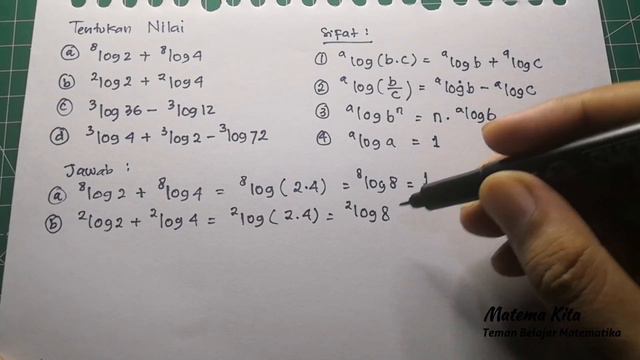 Tentukan Nilai
ⓐ ⁸log2 + ⁸log4
ⓑ ²log2 + ²log4
ⓒ ³log36 - ³log12
ⓓ ³log4 + ³log2 - ³log72
Sifat :
① ᵃlog(b.c) = ᵃlogb + ᵃlogc
② ᵃlog(b/c) = ᵃlogb - ᵃlogc
③ ᵃlogbⁿ = n. ᵃlogb
④ ᵃloga = 1
Jawab :
ⓐ ⁸log2 + ⁸log4 = ⁸log(2.4) = ⁸log8 = 1
ⓑ ²log2 + ²log4 = ²log(2.4) = ²log8
Matema Kita
Teman Belajar Matematika